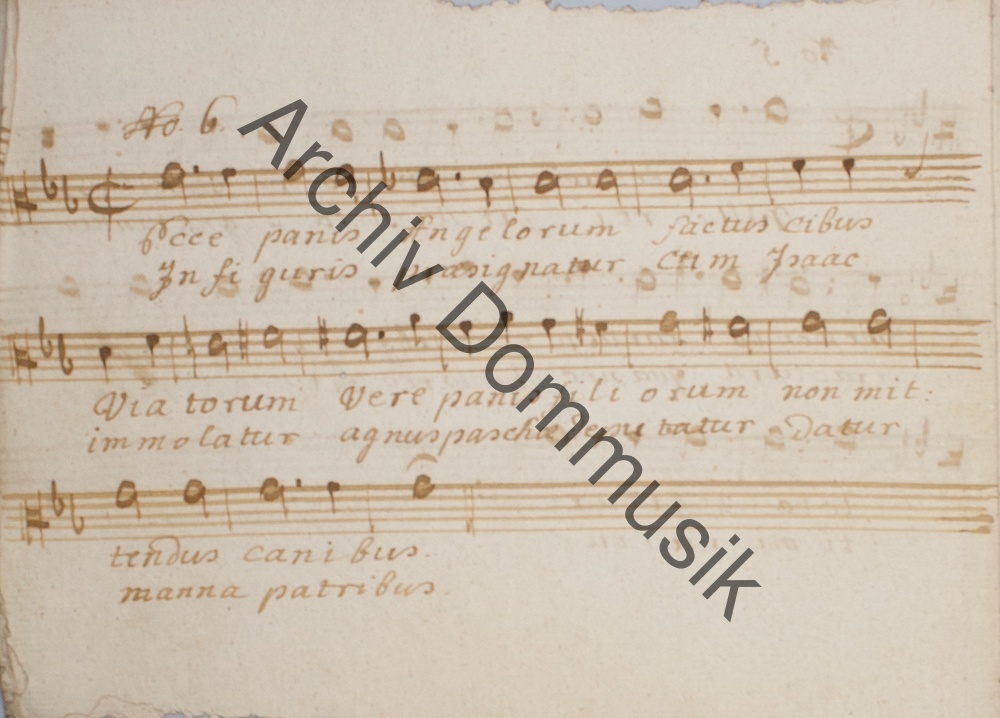 No. 6.
Ecce panis Angelorum factus cibus
In figuris praesignatur cum Isaac
Viatorum Vere panis filiorum non mit:
immolatur agnus paschae deputatur datur
tendus canibus.
manna patribus.
Archiv Dommusik